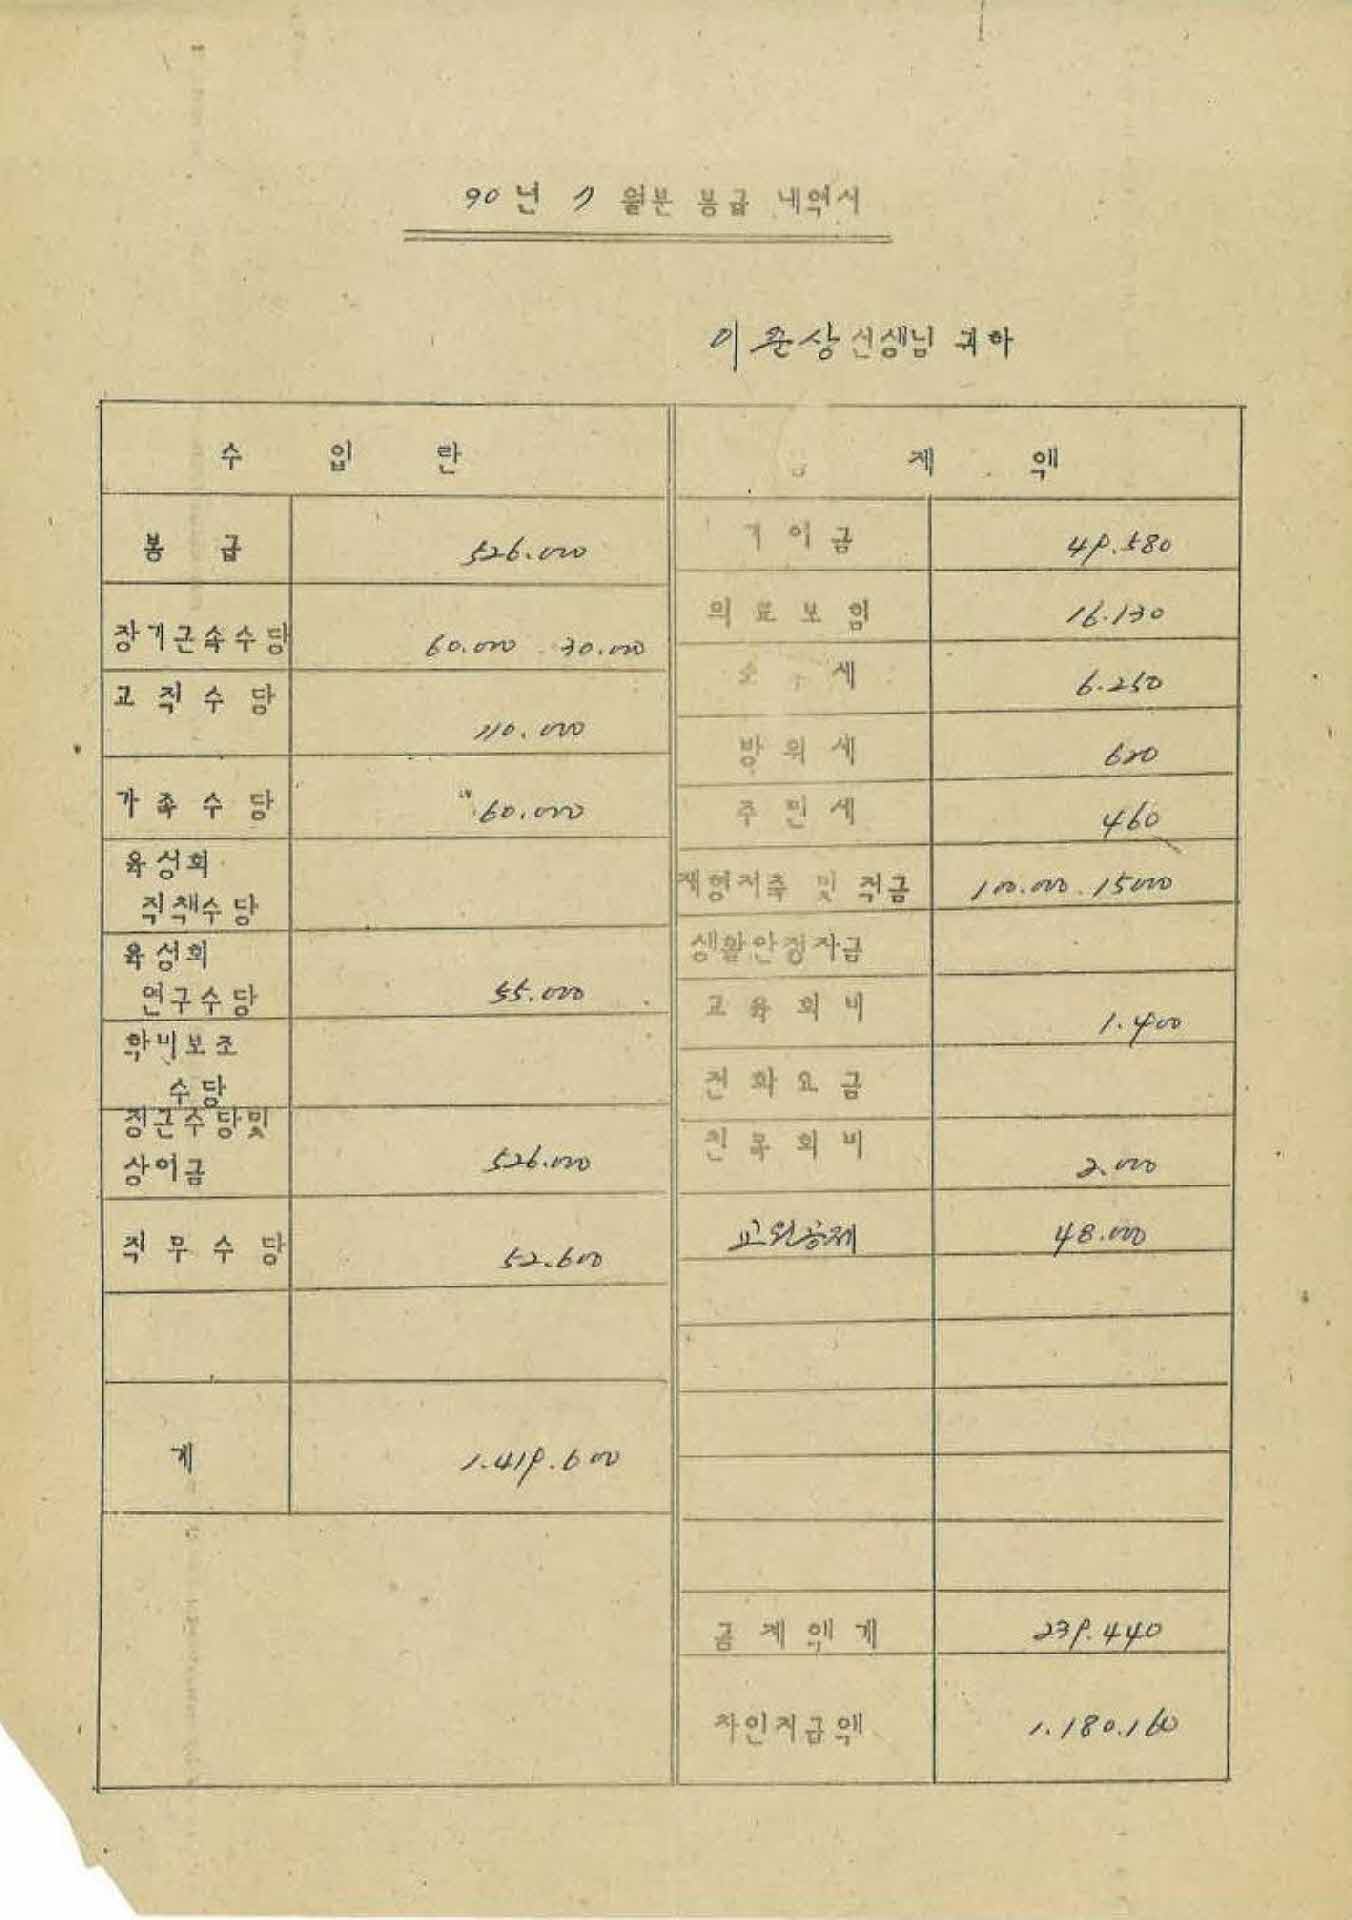 90년 7 월분 봉급 내역서
이준상 선생님 귀하
수 입 란
봉 급 526.000
장기근속수당 60.000 30.000
교직수당 110.000
가족수당 60.000
육성회
직책수당
육성회
연구수당 55.000
학비보조
수당
정근수당및
상여금 526.000
직무수당 52.600
계 1.419.600
공 제 액
기여금 49.580
의료보험 16.130
소득세 6.250
방위세 620
주민세 460
재형저축 및 적금 100.000. 15000
생활안정자금
교육회비 1.400
전화요금
친목회비 2.000
교원공제 48.000
공제액계 239.440
차인지급액 1.180.160